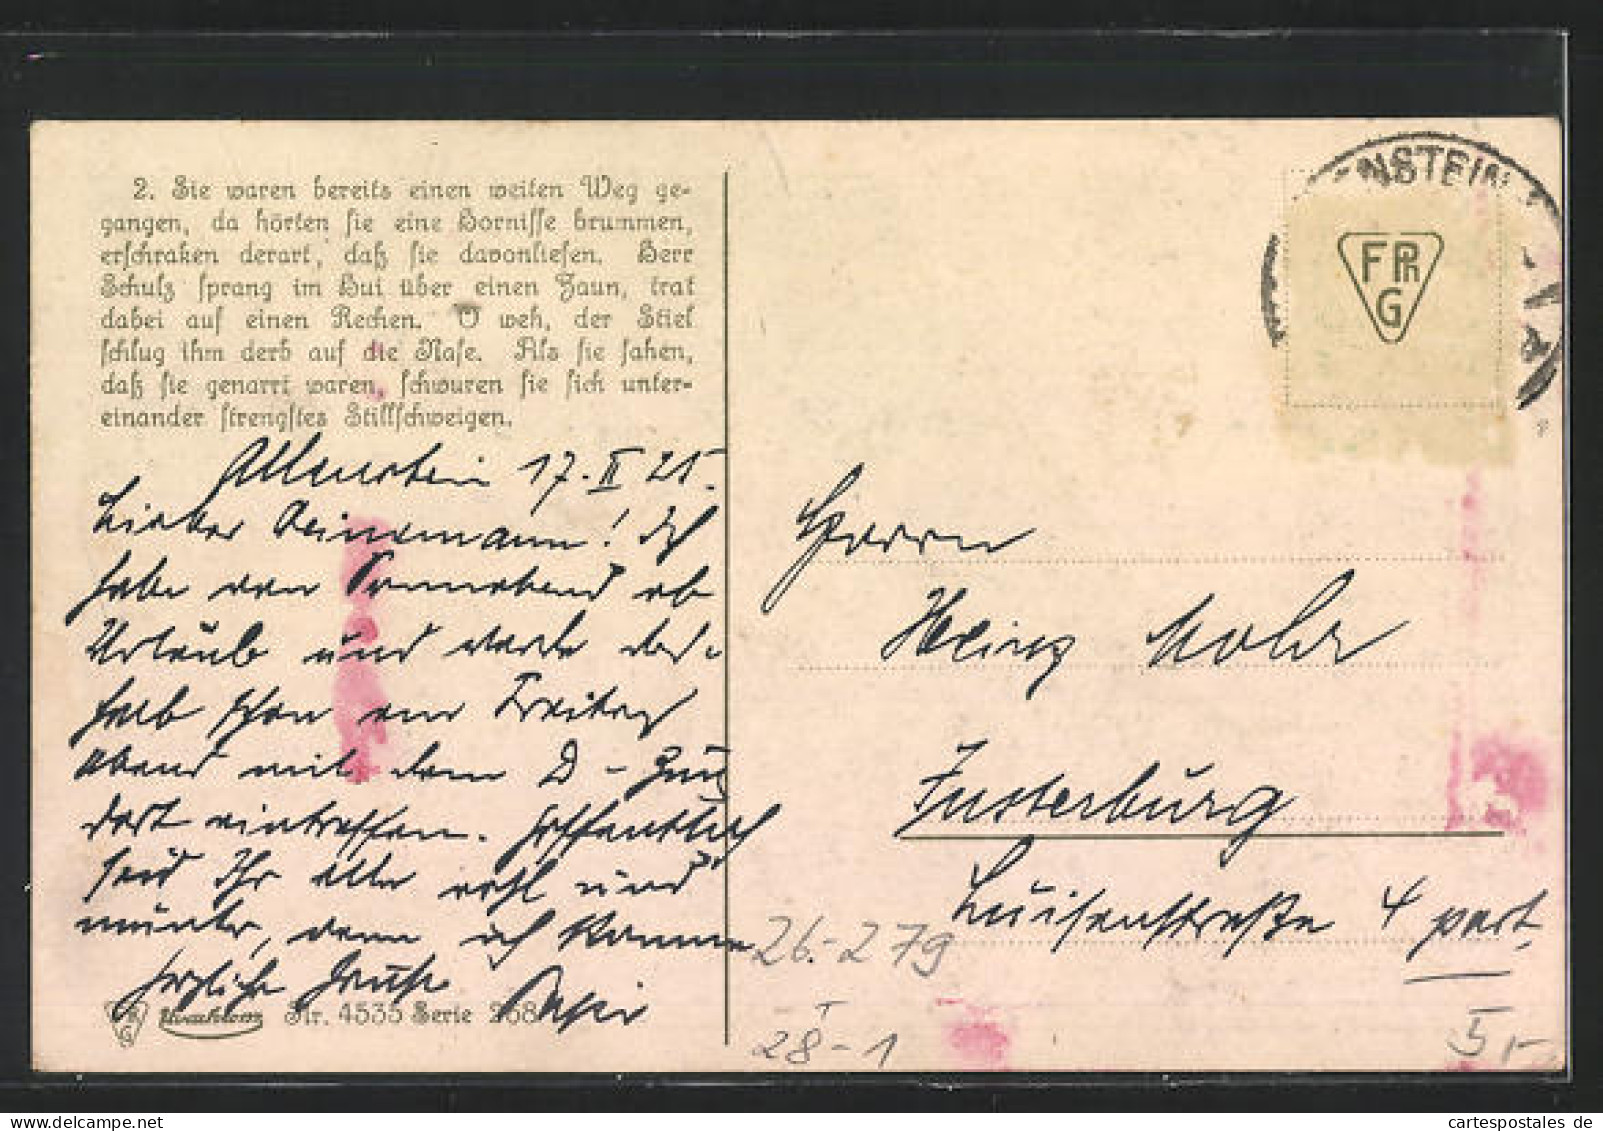 2. Sie waren bereits einen weiten Weg ge-
gangen, da hörten sie eine Hornisse brummen,
erschraken derart, daß sie davonliefen. Herr
Schulz sprang im Hui über einen Zaun, trat
dabei auf einen Rechen. O weh, der Stiel
schlug ihm derb auf die Nase. Als sie sahen,
daß sie genarrt waren, schwuren sie sich unter-
einander strengstes Stillschweigen.
Allenstein 17. II 25.
Lieber Heinemann! Ich
habe von Sonnabend ab
Urlaub und werde des-
halb schon am Freitag
Abend mit dem D-Zug
dort eintreffen. Hoffentlich
seid Ihr alle wohl und
munter, denn ich komme
herzliche Grüße Papi
Uvachrom Nr. 4535 Serie 268
ENSTEIN
FPhG
Herrn
Heinz Mohr
Insterburg
Luisenstraße 4 part.
26.-279
28-1
5,-
www.cartespostales.de
cartespostales de